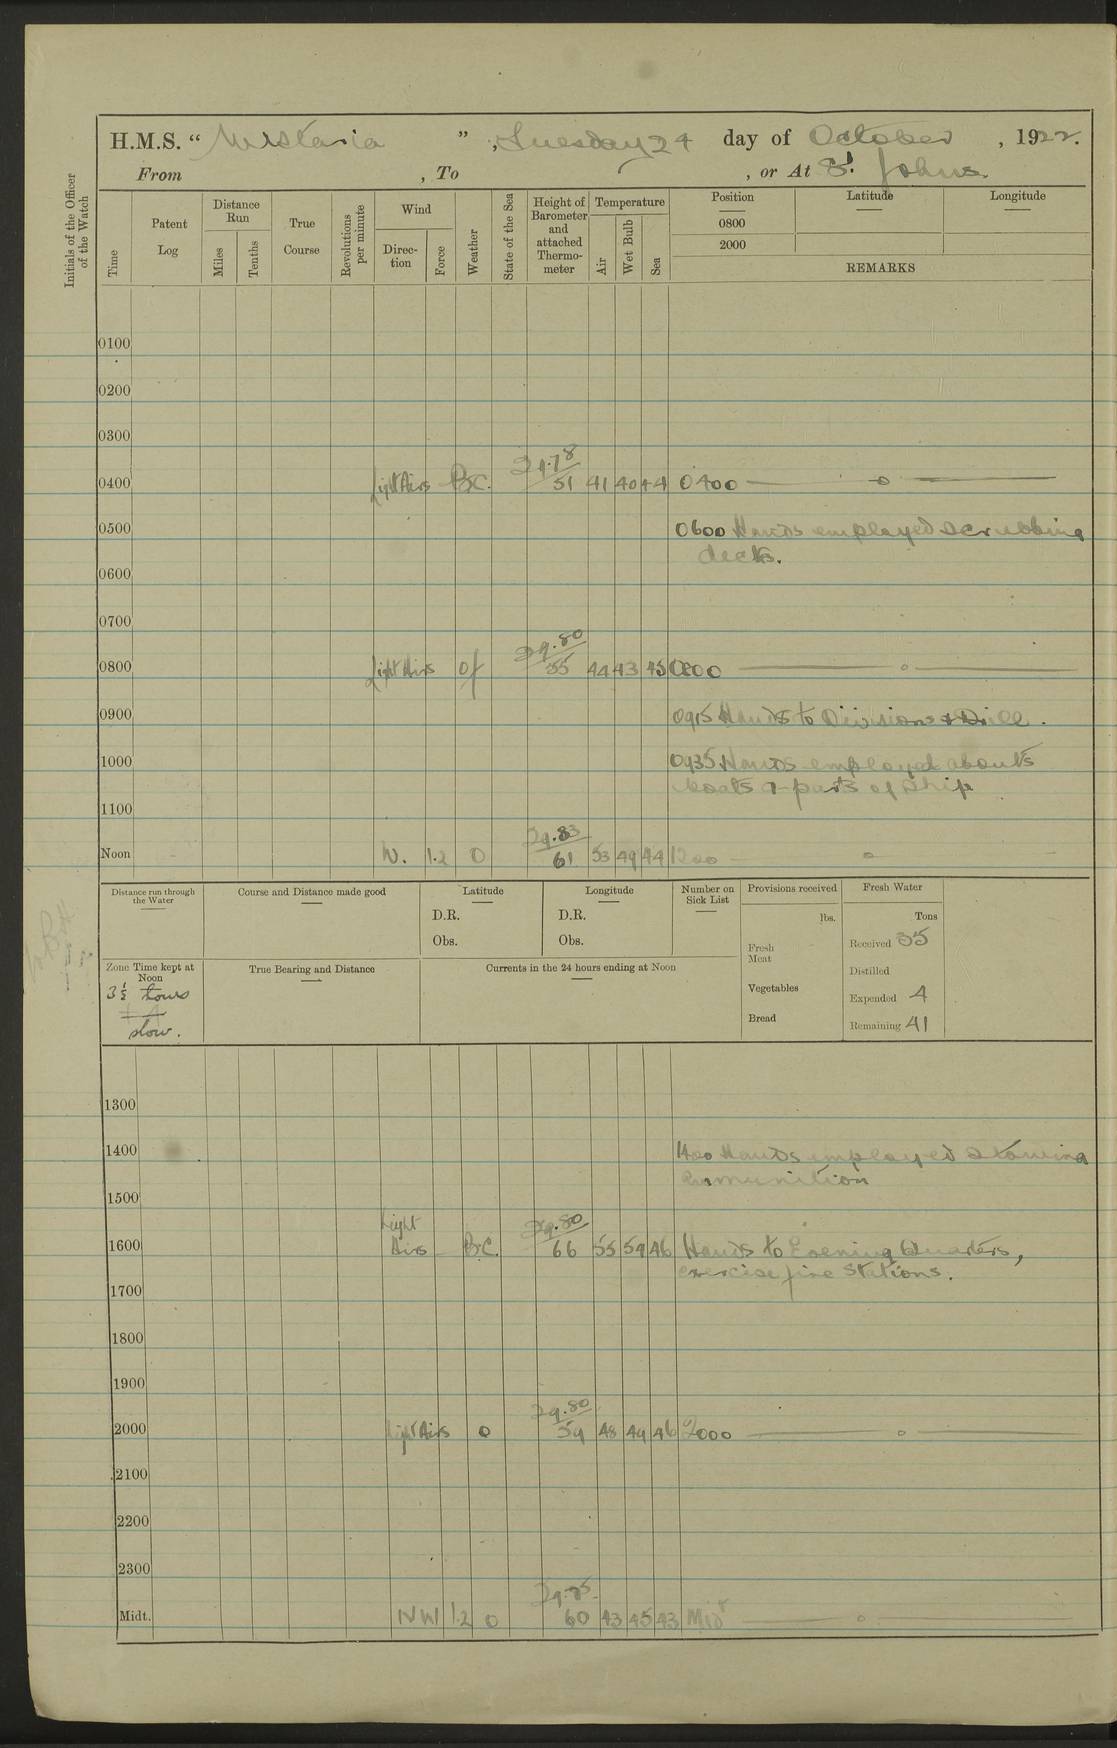 H.M.S. “ Wistaria ”, Tuesday 24 day of October, 1922.
From , To , or At St. Johns
Initials of the Officer of the Watch
Time
Patent Log
Distance Run
Miles
Tenths
True Course
Revolutions per minute
Wind
Direction
Force
Weather
State of the Sea
Height of Barometer and attached Thermometer
Temperature
Air
Wet Bulb
Sea
Position
Latitude
Longitude
0800
2000
REMARKS
0100
0200
0300
29.78
0400 Light Airs B.C. 51 41 40 44 0400
0500
0600 Hands employed scrubbing
decks.
0600
0700
29.80
0800 Light Airs of 55 44 43 45 0800
0900
0915 Hands to Divisions & Drill.
1000
0935 Hands employed abouts
boats & parts of ship
1100
29.83
Noon W. 1.2 O 61 53 49 44 1200
Distance run through the Water
Course and Distance made good
Latitude
D.R.
Obs.
Longitude
D.R.
Obs.
Number on Sick List
Provisions received
lbs.
Fresh Meat
Vegetables
Bread
Fresh Water
Tons
Received 35
Distilled
Expended 4
Remaining 41
Zone Time kept at Noon
3½ hours
slow.
True Bearing and Distance
Currents in the 24 hours ending at Noon
1300
1400
1400 Hands employed stowing
ammunition
1500
29.80
1600 Light Airs B.C. 66 55 54 46 Hands to Evening Quarters,
exercise fire stations.
1700
1800
1900
29.80
2000 Light Airs O 54 48 44 46 2000
2100
2200
2300
29.85
Midt. NW 1.2 O 60 43 45 43 Midt